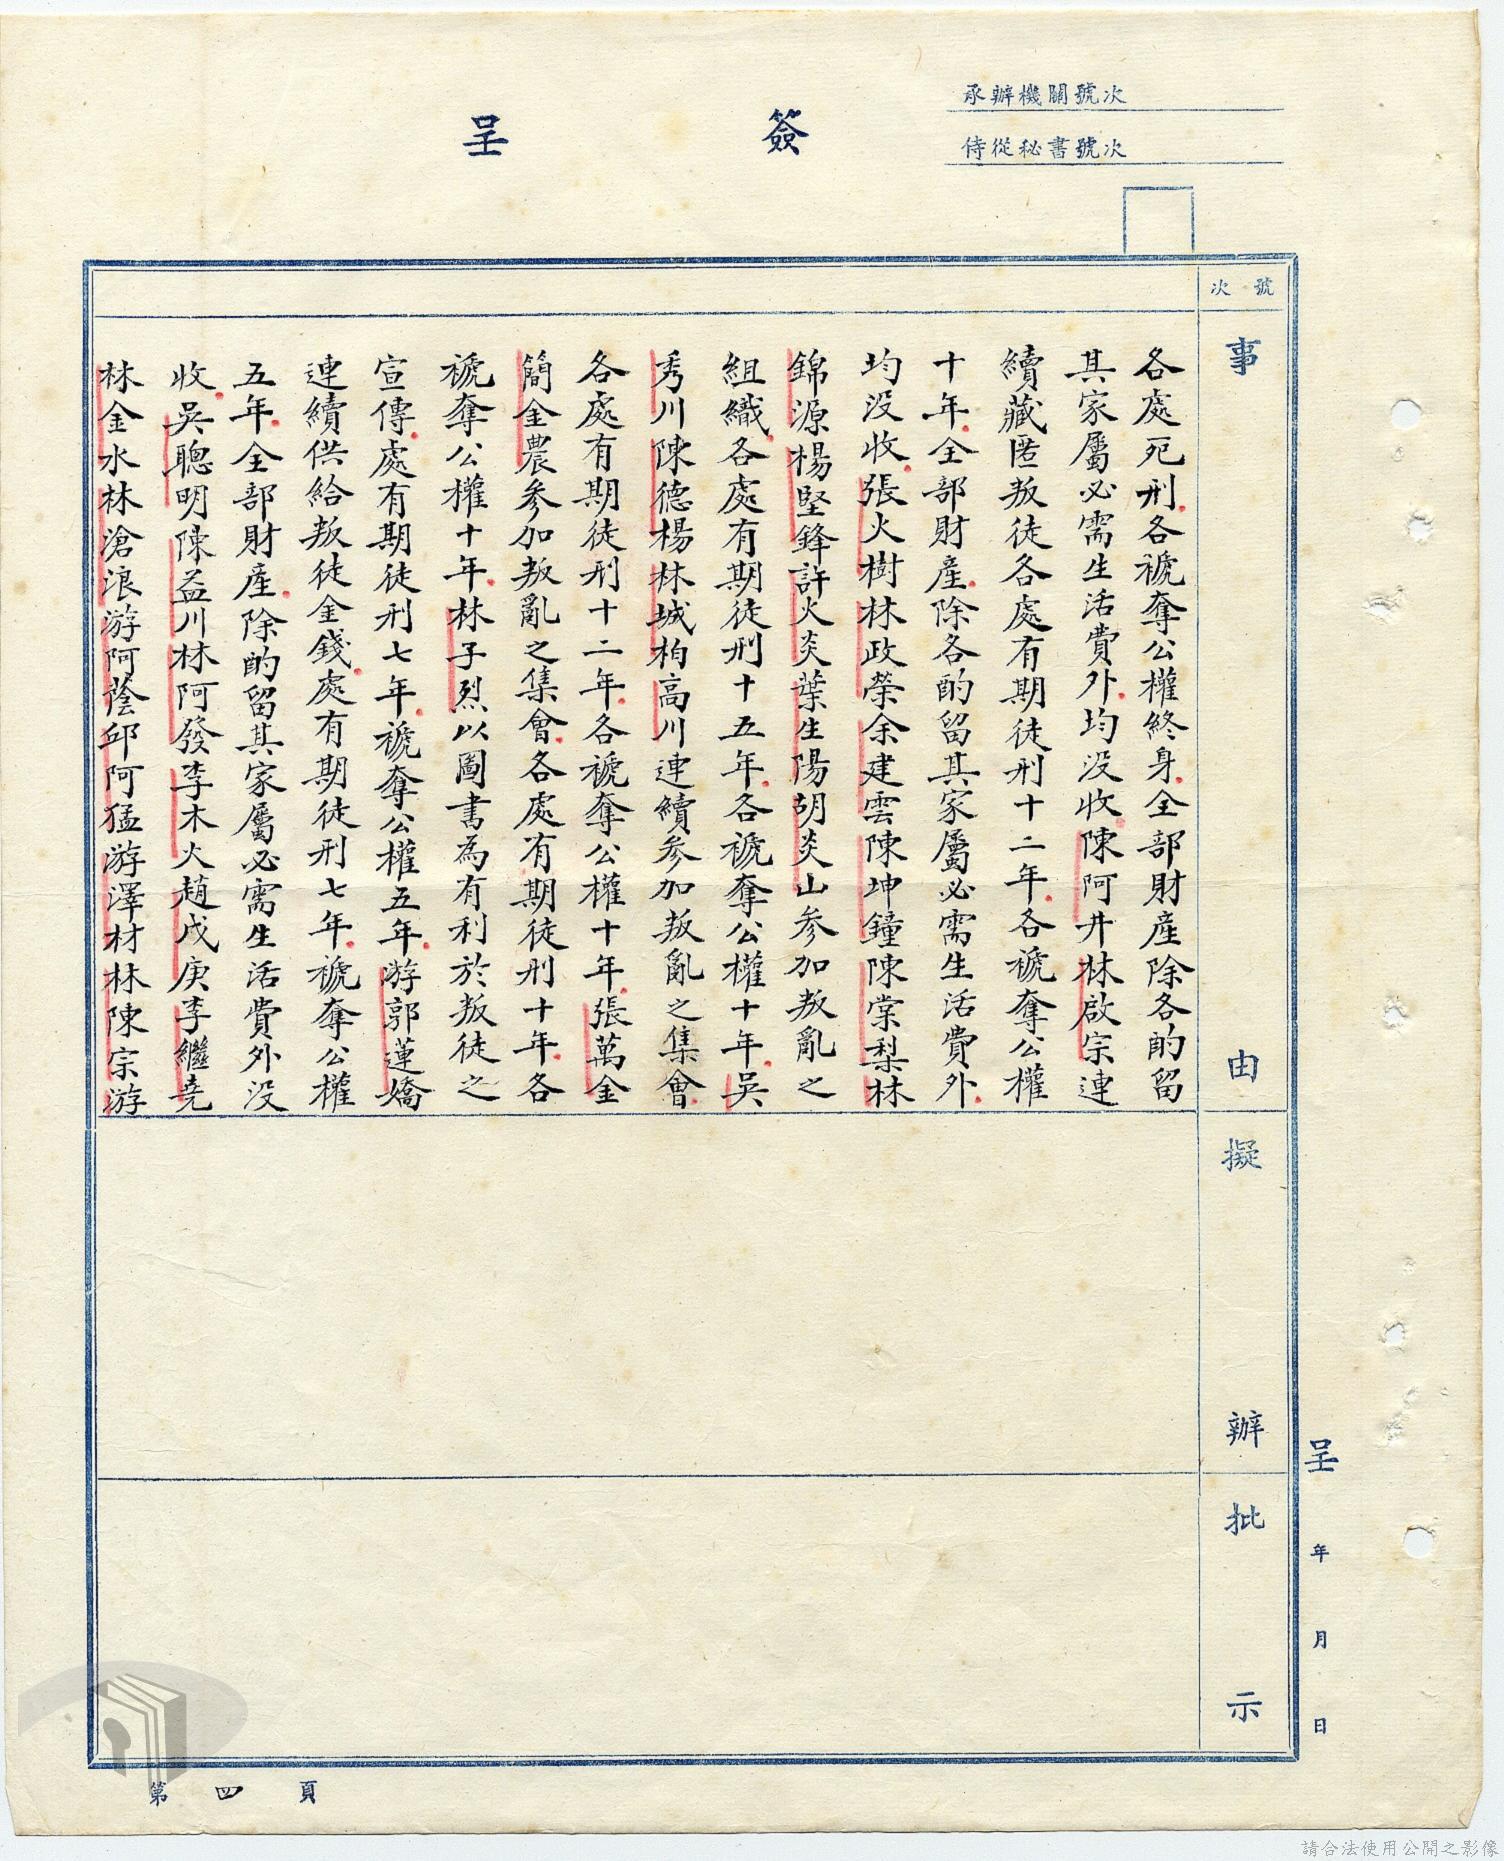 承辦機關號次
侍從秘書號次
簽呈
號次
事由
各處死刑各褫奪公權終身全部財產除各酌留
其家屬必需生活費外均沒收陳阿井林啟宗連
續藏匿叛徒各處有期徒刑十二年各褫奪公權
十年全部財產除各酌留其家屬必需生活費外
均沒收張火樹林政榮余建雲陳坤鐘陳棠梨林
錦源楊堅鋒許火炎葉生陽胡炎山參加叛亂之
組織各處有期徒刑十五年各褫奪公權十年吳
秀川陳德楊林城柏高川連續參加叛亂之集會
各處有期徒刑十二年各褫奪公權十年張萬金
簡金農參加叛亂之集會各處有期徒刑十年各
褫奪公權十年林子烈以圖書為有利於叛徒之
宣傳處有期徒刑七年褫奪公權五年游郭蓮嬌
連續供給叛徒金錢處有期徒刑七年褫奪公權
五年全部財產除酌留其家屬必需生活費外沒
收吳聰明陳益川林阿發李木火趙戊庚李繼堯
林金水林滄浪游阿蔭邱阿猛游澤材林陳宗游
擬辦
批示
呈 年 月 日
第四頁
請合法使用公開之影像